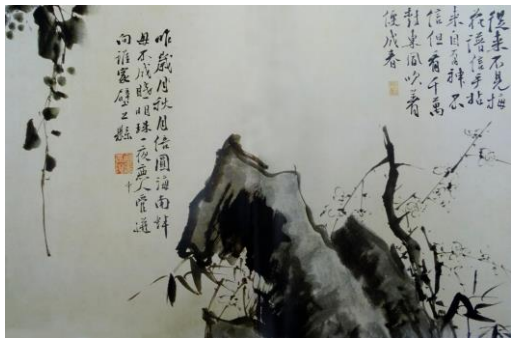 從來不見梅
花譜信手拈
來自有神不
信但看千萬
樹東風吹着
便成春
昨歲月秋月倍圓海南蚌
母不成眠明珠一夜無人管迸
向誰家壁上懸
中